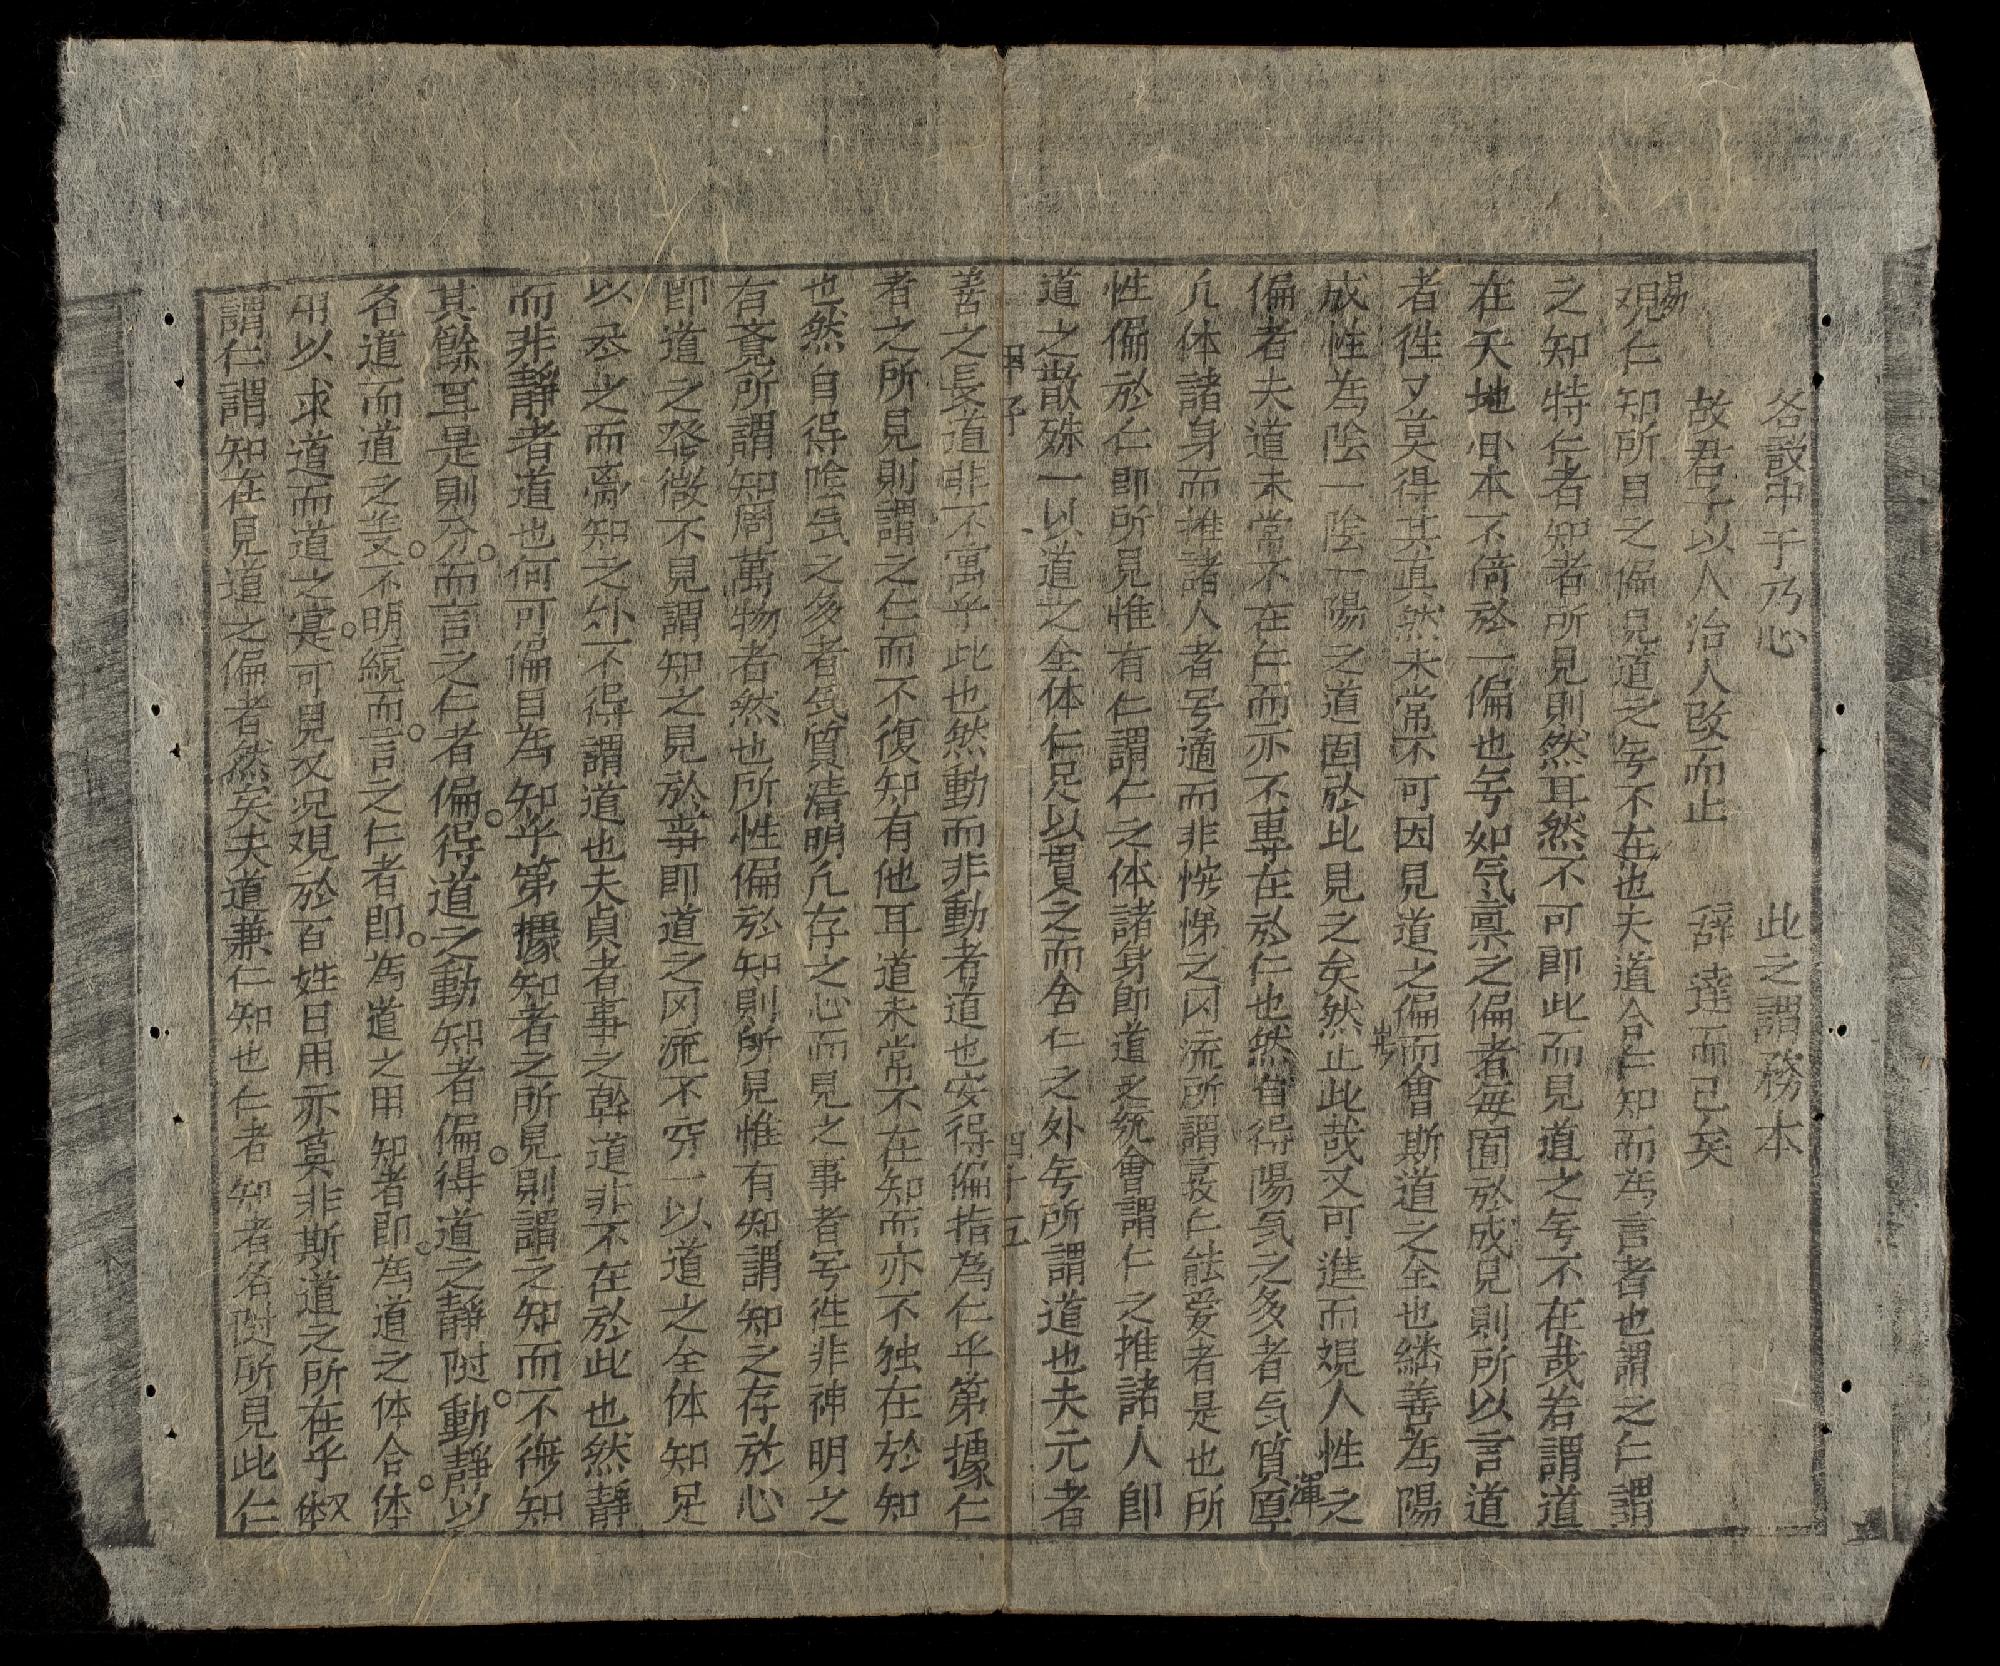 各設中于乃心　此之謂務本
故君子以人治人改而止　辞達而已矣
易
观仁知所目之偏見道之㝵不在也夫道合仁知而為言者也謂之仁謂
之知特仁者知者所見則然耳然不可即此而見道之㝵不在哉若謂道
在天地心本不倚於一偏也㝵如气禀之偏者每囿於成見則所以言道
者徃又莫得其真然未常不可因見道之偏而會斯道之全也継善為陽
成性為陰一陰一陽之道固於此見之矣然止此哉又可進而規人性之
偏者夫道未常不在仁而亦不専在於仁也然自得陽気之多者気質渾厚
凢体諸身而推諸人者㝵適而非愷悌之周流所謂長仁能爱者是也所
性偏於仁即所見惟有仁謂仁之体諸身即道之統會謂仁之推諸人即
道之散殊一以道之全体仁足以貫之而舍仁之外㝵所謂道也夫元者
甲子　四十五
善之長道非不寓乎此也然動而非動者道也安得偏指為仁乎第據仁
者之所見則謂之仁而不復知有他耳道未常不在知而亦不独在於知
也然自得陰気之多者気質清明凢存之心而見之事者㝵徃非神明之
有覺所謂知周萬物者然也所性偏於知則所見惟有知謂知之存於心
即道之發微不見謂知之見於事即道之周流不穷一以道之全体知足
以尽之而离知之外不得謂道也夫貞者事之幹道非不在於此也然静
而非靜者道也何可偏目為知乎第據知者之所見則謂之知而不復知
其餘耳是則分而言之仁者偏得道之動知者偏得道之靜附動靜以
名道而道之美不明統而言之仁者即為道之用知者即為道之体合体
用以求道而道之寔可見又况观於百姓日用亦莫非斯道之所在乎㕛体
謂仁謂知在見道之偏者然矣夫道兼仁知也仁者知者名附所見此仁